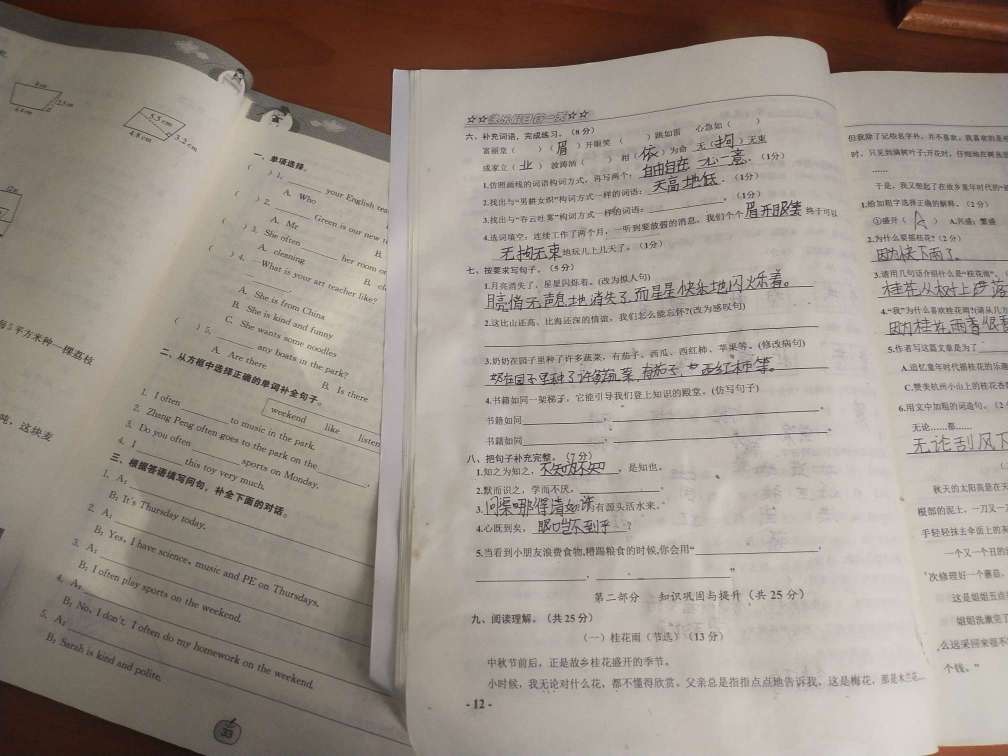 4cm
2.5cm
4.4cm
5.5 cm
4.8 cm
3.2 cm
平方米种一棵荔枝
吨,这块麦
一、单项选择。
( ) 1. ______ your English tea
A. Who
B.
( ) 2. ______ Green is our new
A. Mr
B.
( ) 3. She often ______ her room on
A. cleaning
B. cl
( ) 4. — What is your art teacher like?
— ______.
A. She is from China
B. She is kind and funny
C. She wants some noodles
( ) 5. ______ any boats in the park?
A. Are there
B. Is there
二、从方框中选择正确的单词补全句子。
weekend like listen
1. I often ______ to music in the park.
2. Zhang Peng often goes to the park on the ______.
3. Do you often ______ sports on Monday.
4. I ______ this toy very much.
三、根据答语填写问句,补全下面的对话。
1. A: ______
B: It's Thursday today.
2. A: ______
B: Yes, I have science, music and PE on Thursdays.
3. A: ______
B: I often play sports on the weekend.
4. A: ______
B: No, I don't. I often do my homework on the weekend.
5. A: ______
B: Sarah is kind and polite.
33
六、补充词语,完成练习。(8分)
富丽堂( ) (眉)开眼笑 ( )跳如雷 心急如( )
成家立(业) 波涛汹( ) 相(依)为命 无(拘)无束
1.仿照画线的词语构词方式,再写两个: 自由自在 。(1分)
2.找出与“男耕女织”构词方式一样的词语: 天高地低 。(1分)
3.找出与“吞云吐雾”构词方式一样的词语: ______。(1分)
4.选词填空:连续工作了两个月,一听到要放假的消息,我们个个眉开眼笑 终于可以
无拘无束地玩儿上几天了。(1分)
七、按要求写句子。(5分)
1.月亮消失了,星星闪烁着。(改为拟人句)
月亮悄无声息地消失了,而星星快乐地闪烁着。
2.这比山还高、比海还深的情谊,我们怎么能忘怀?(改为感叹句)
3.奶奶在园子里种了许多蔬菜,有茄子、西瓜、西红柿、苹果等。(修改病句)
奶奶在园子里种了许多蔬菜,有茄子、西红柿等。
4.书籍如同一架梯子,它能引导我们登上知识的殿堂。(仿写句子)
书籍如同______,______。
书籍如同______,______。
八、把句子补充完整。(7分)
1.知之为知之,不知为不知,是知也。
2.默而识之,学而不厌,______。
3.问渠那得清如许,为有源头活水来。
4.心既到矣,眼口岂不到乎?
5.当看到小朋友浪费食物,糟蹋粮食的时候,你会用“______,
______,______”
第二部分 知识巩固与提升(共25分)
九、阅读理解。(共25分)
(一)桂花雨(节选)(13分)
中秋节前后,正是故乡桂花盛开的季节。
小时候,我无论对什么花,都不懂得欣赏。父亲总是指指点点地告诉我,这是梅花,那是木兰花……
- 12 -
但我除了记些名字外,并不喜欢。我喜欢的是
时,只见到满树叶子;开花时,仔细地在树丛里
……
于是,我又想起了在故乡童年时代的“
1.给加粗字选择正确的解释。(2分)
①盛开( A ) A.兴盛;繁盛
2.为什么要摇桂花?(2分)
因为快下雨了。
3.请用几句话介绍什么是“桂花雨”。
桂花从树上掉落
4.“我”为什么喜欢桂花雨?(请从几方
因为桂花雨香
5.作者写这篇文章是为了
A.追忆童年时代摇桂花的乐趣
C.赞美杭州小山上的桂花香
6.用文中加粗的词造句。(2分
无论……都……
无论刮风下
秋天的太阳高悬在天
根部的泥土,一刀又一
手轻轻抹去伞面上的
一个又一个丑的
次修理好一个蘑菇,
这是姐姐五点
姐姐洗漱完了
,么远采回来很不
个钱。”